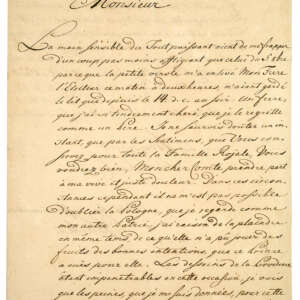 Monsieur
La main invisible du Tout puissant vient de me frapper
d'un coup pas moins affligeant que celui du 5 8bre
parce que la petite verole m'a enlevé Mon Frere
l'Electeur ce matin a deux heures, n'aiant gardé
le lit que depuis le 14. d. c. au soir. Un frere,
que j'aimois tendrement cheri, que je le regrette
comme un Pere. Je ne saurois douter un in-
stant, que par les sentimens, que Vous con-
servez pour toute la Famille Roiale, Vous
voudrez bien, Mon cher Comte, prendre part
à ma vive et juste douleur. Dans ces circon-
stances cependant il ne m'est pas possible
d'oublier la Pologne, que je regarde comme
mon autre Patrie; j'ai raison de la plaindre
en même tems de ce qu'elle n'a pû gouter des
fruits des bonnes intentions, que ce Prince
a eües pour elle. Les desseins de la Providence
étant impénétrables en cette occasion, je vois
que les peines, que je me suis données, pour cette